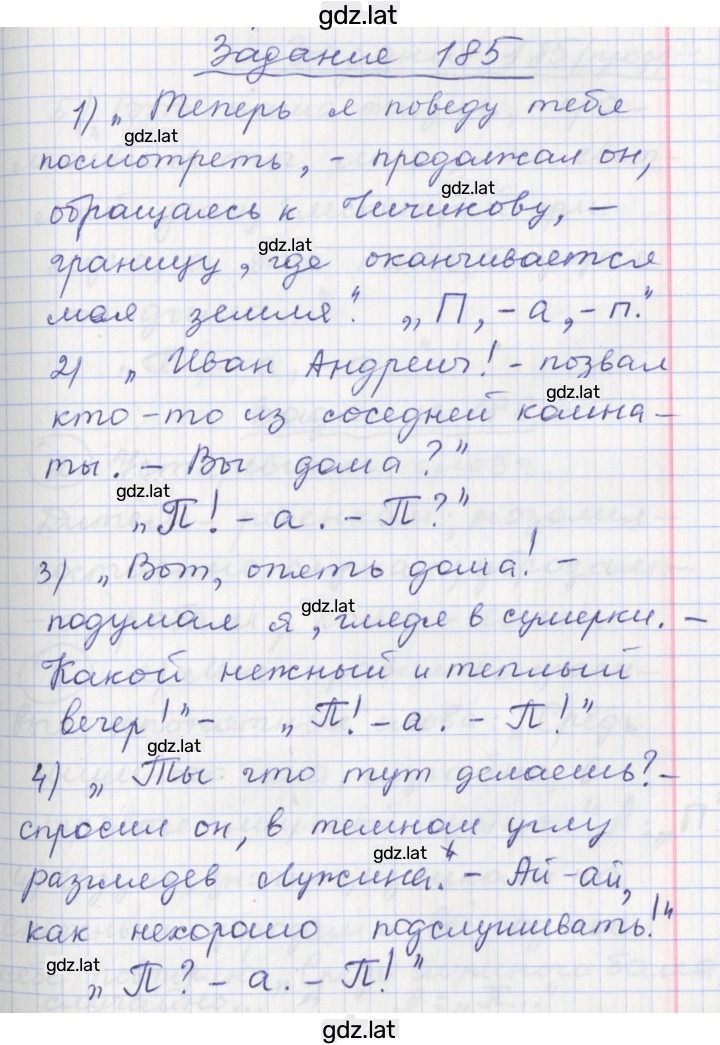 gdz.lat
Задание 185
1) „Теперь я поведу тебя
gdz.lat
посмотреть, - продолжал он,
gdz.lat
обращаясь к Чичикову, -
gdz.lat
границу, где оканчивается
моя земля". „П, - а, - п."
2) „Иван Андреич! - позвал
gdz.lat
кто-то из соседней комна-
ты. - Вы дома?"
gdz.lat
„П! - а. - П?"
3) „Вот, опять дома! -
gdz.lat
подумал я, глядя в сумерки. -
Какой нежный и теплый
вечер!" - „П! - а. - П!"
gdz.lat
4) „Ты что тут делаешь? -
спросил он, в темном углу
gdz.lat
разглядев Лужина. - Ай-ай,
как нехорошо подслушивать!"
gdz.lat
„П? - а. - П!"
gdz.lat